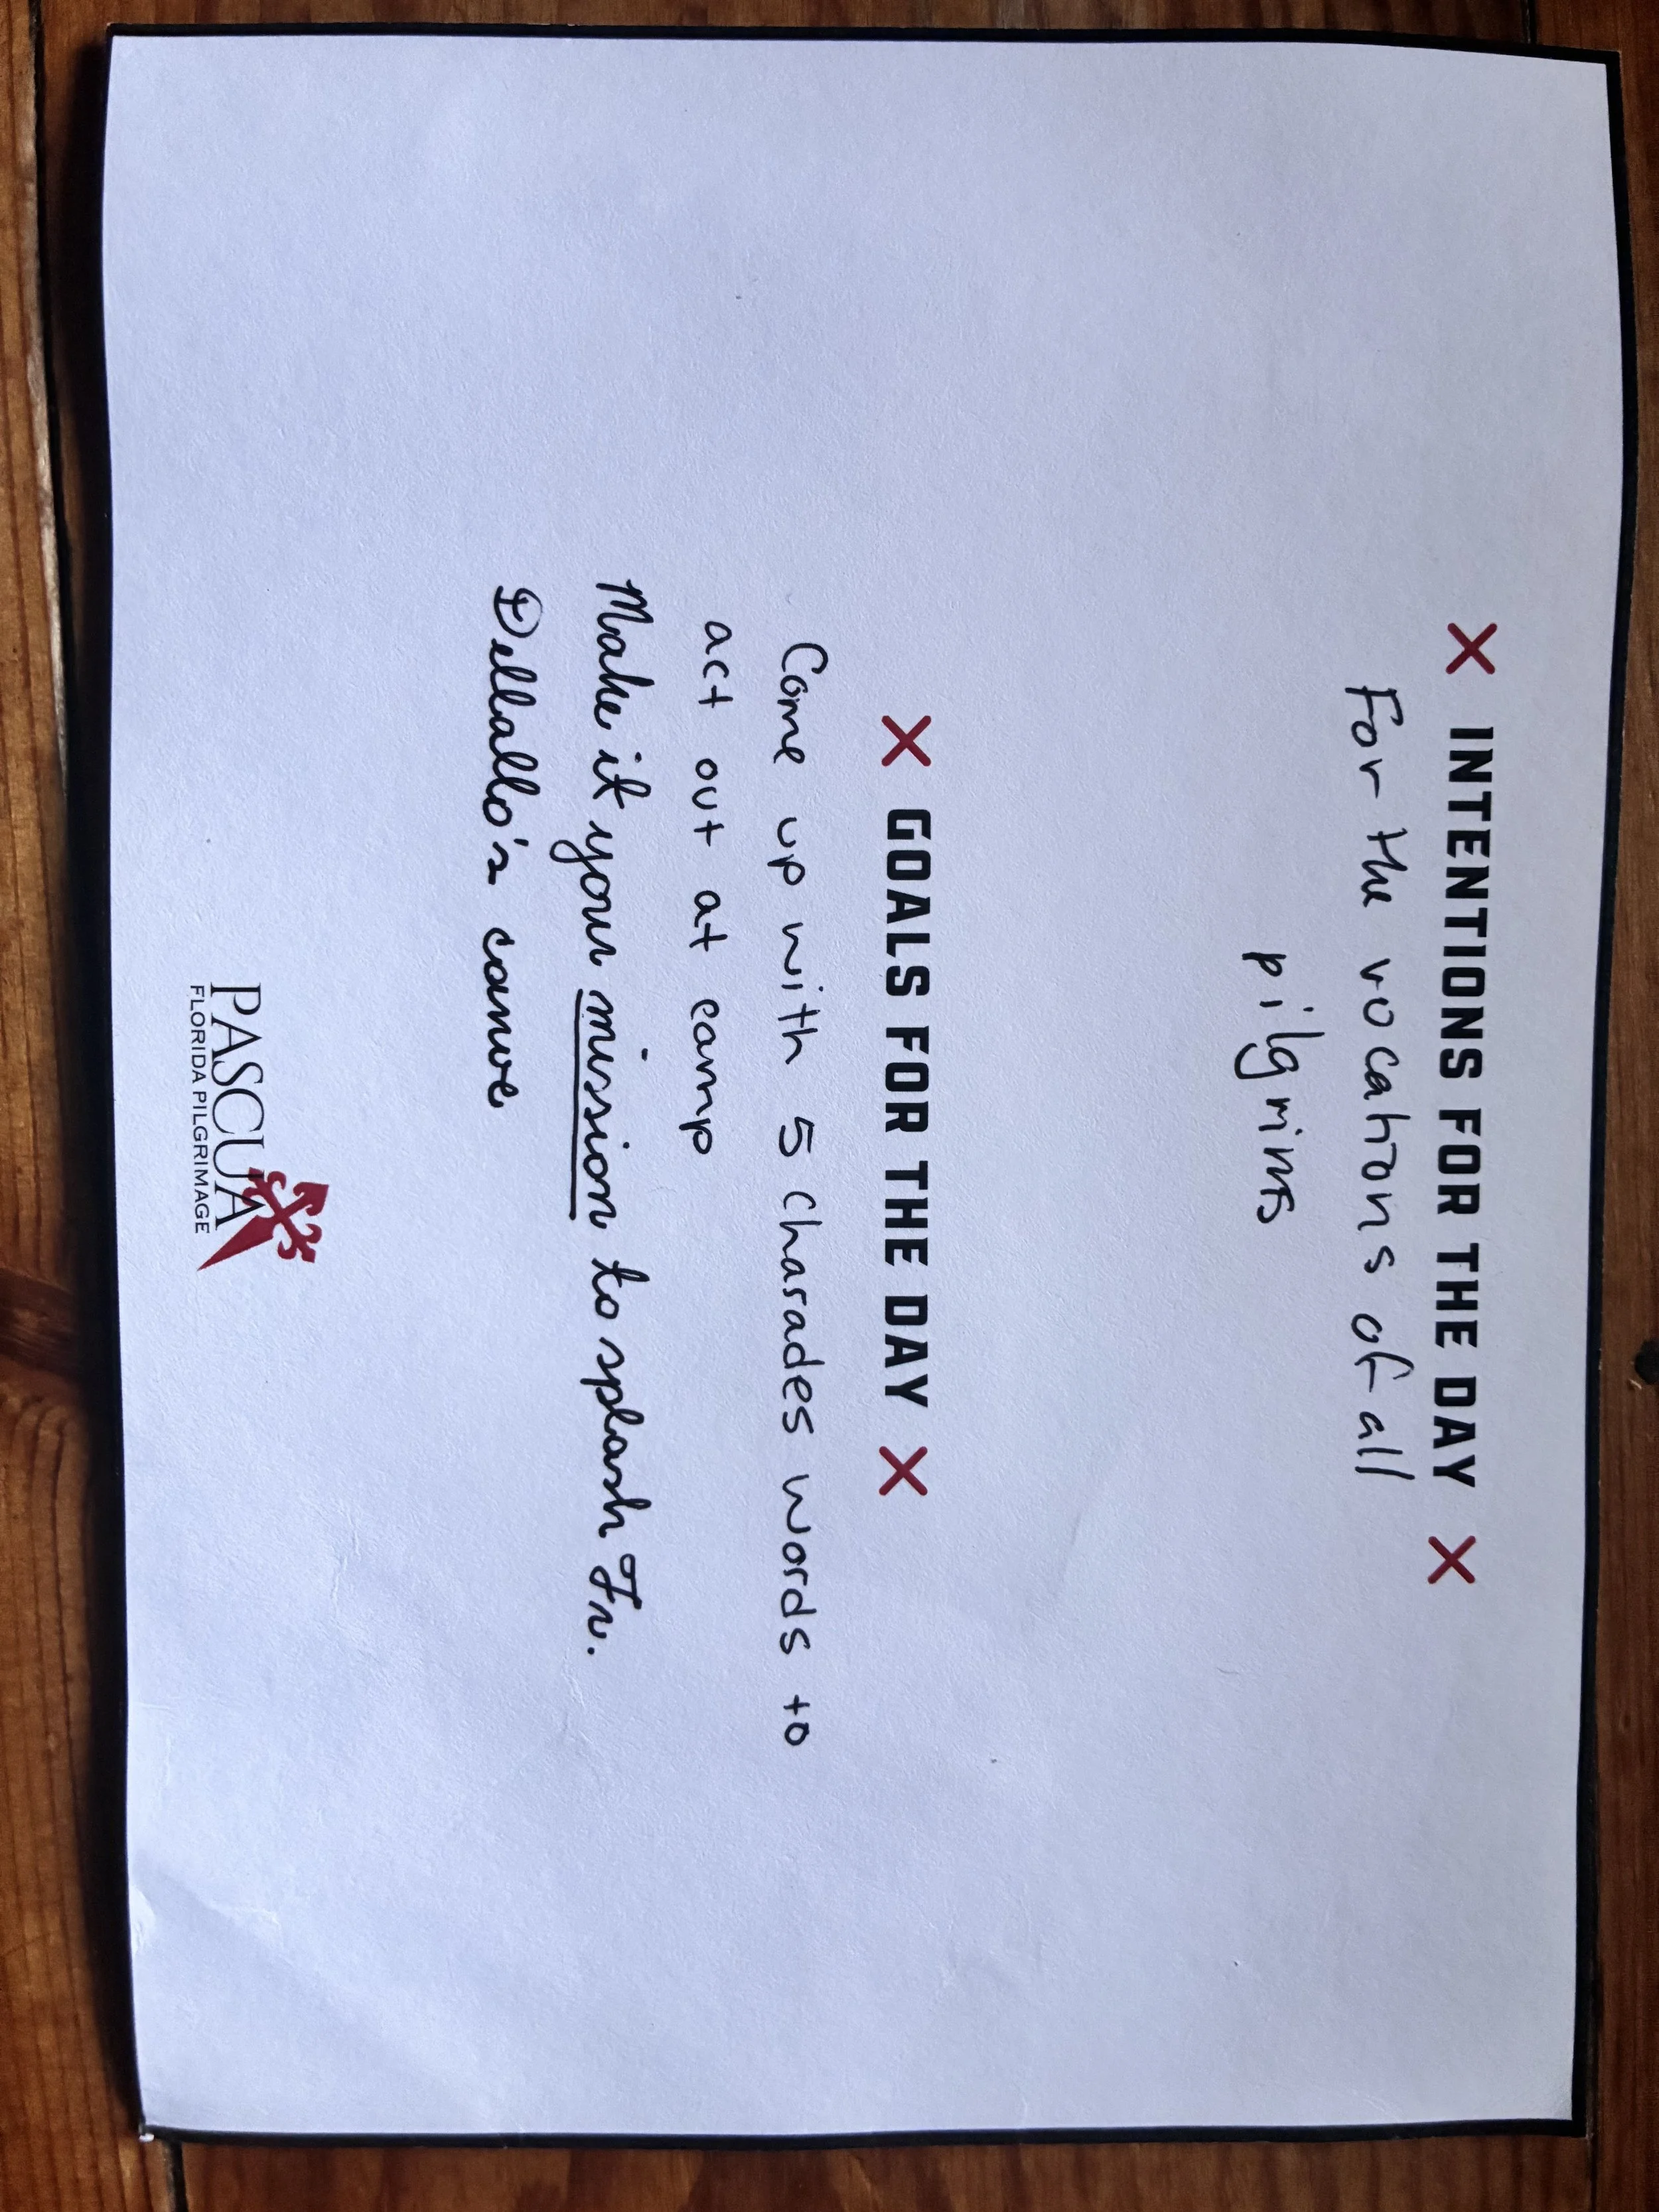 INTENTIONS FOR THE DAY
For the vocations of all
pilgrims
GOALS FOR THE DAY
Come up with 5 charades words to
act out at camp
Make it your mission to splash Fr.
Dellallo's canoe
PASCUA
FLORIDA PILGRIMAGE